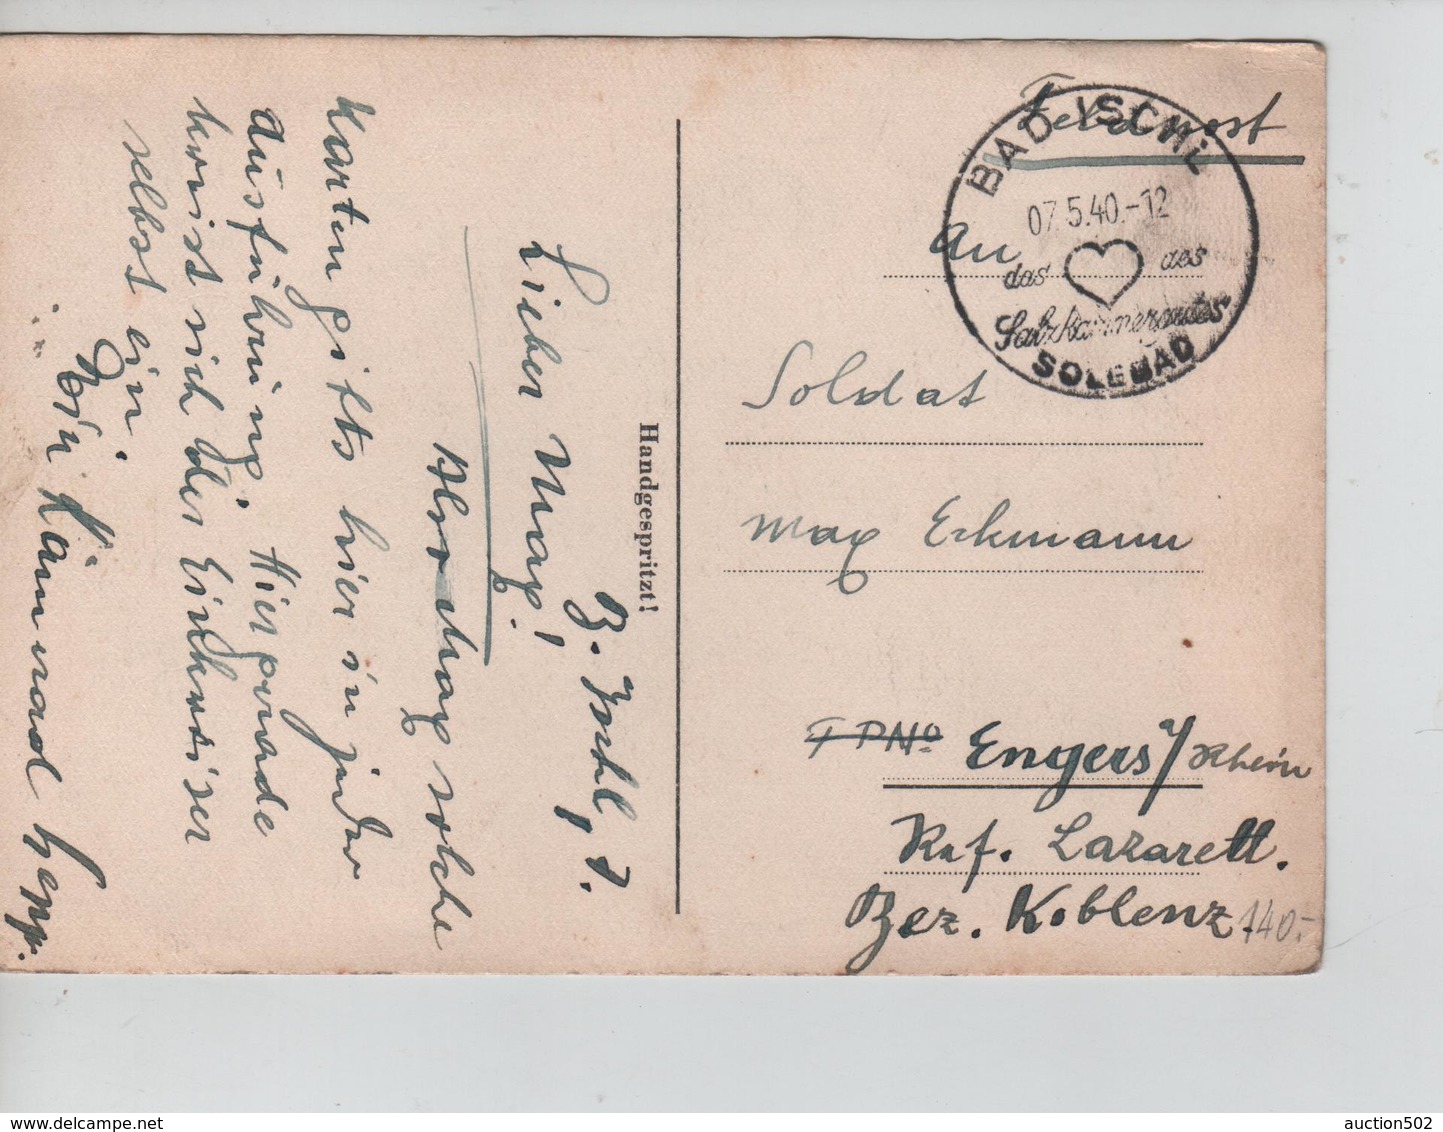 B. Ischl, 7.
Lieber Max!
Also Max solche
Karten gibts hier in jeder
Ausführung. Hier gerade
weist sich der Einkeiser
selbst ein.
Dein Kamerad Sepp.
Handgespritzt!
Feldpost
BAD ISCHL
07.5.40.-12
das ♡ des
Salzkammergutes
SOLEBAD
An
Soldat
Max Eckmann
FPNo Engers/Rhein
Res. Lazarett.
Bez. Koblenz.
140.-
auction502